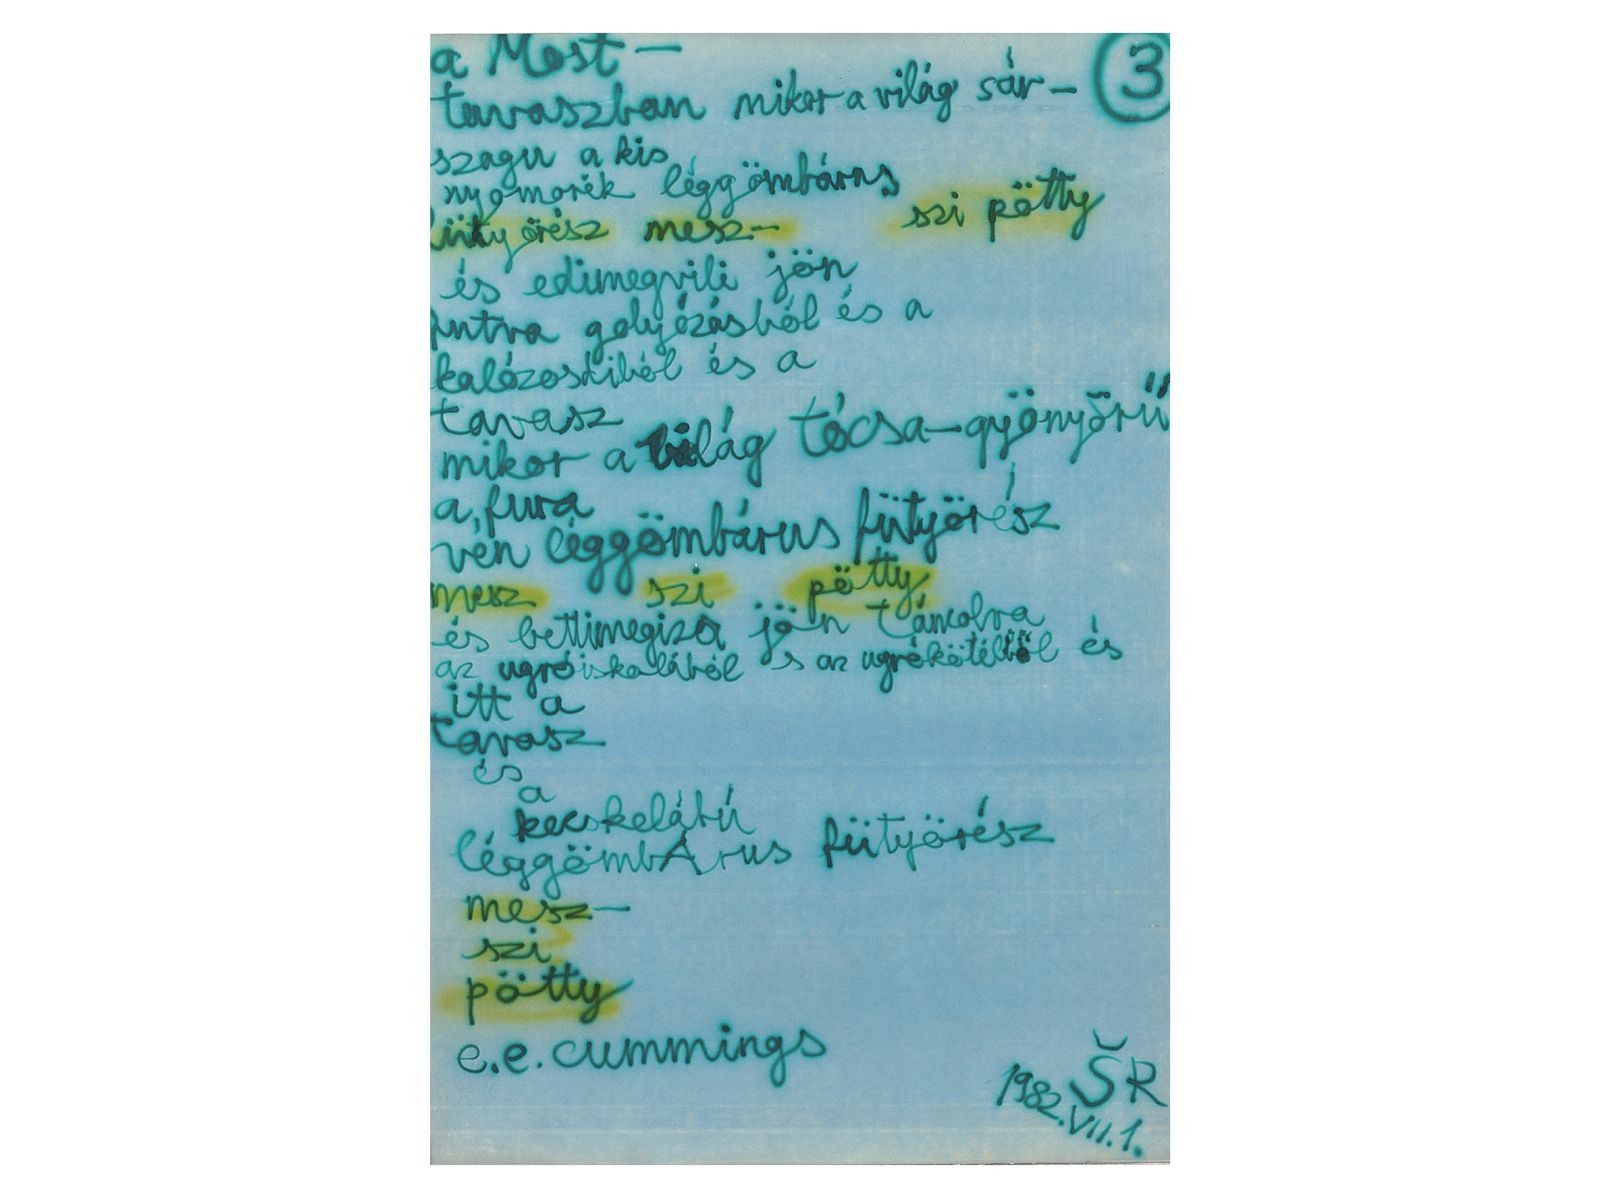 a Most — ③
tavaszban mikor a világ sár—
szagu a kis
nyomorék léggömbárus
fütyörész mesz— szi pötty
és edimegvili jön
futva golyózásból és a
kalózosdiból és a
tavasz
mikor a világ tócsa—gyönyörű
a, fura
vén léggömbárus fütyörész
mesz szi pötty
és bettimegiza jön táncolva
az ugróiskolából s az ugrókötélből és
itt a
tavasz
és
a
kecskelábú
léggömbÁrus fütyörész
mesz—
szi
pötty
e.e. cummings
ŠR
1982.VII.1.